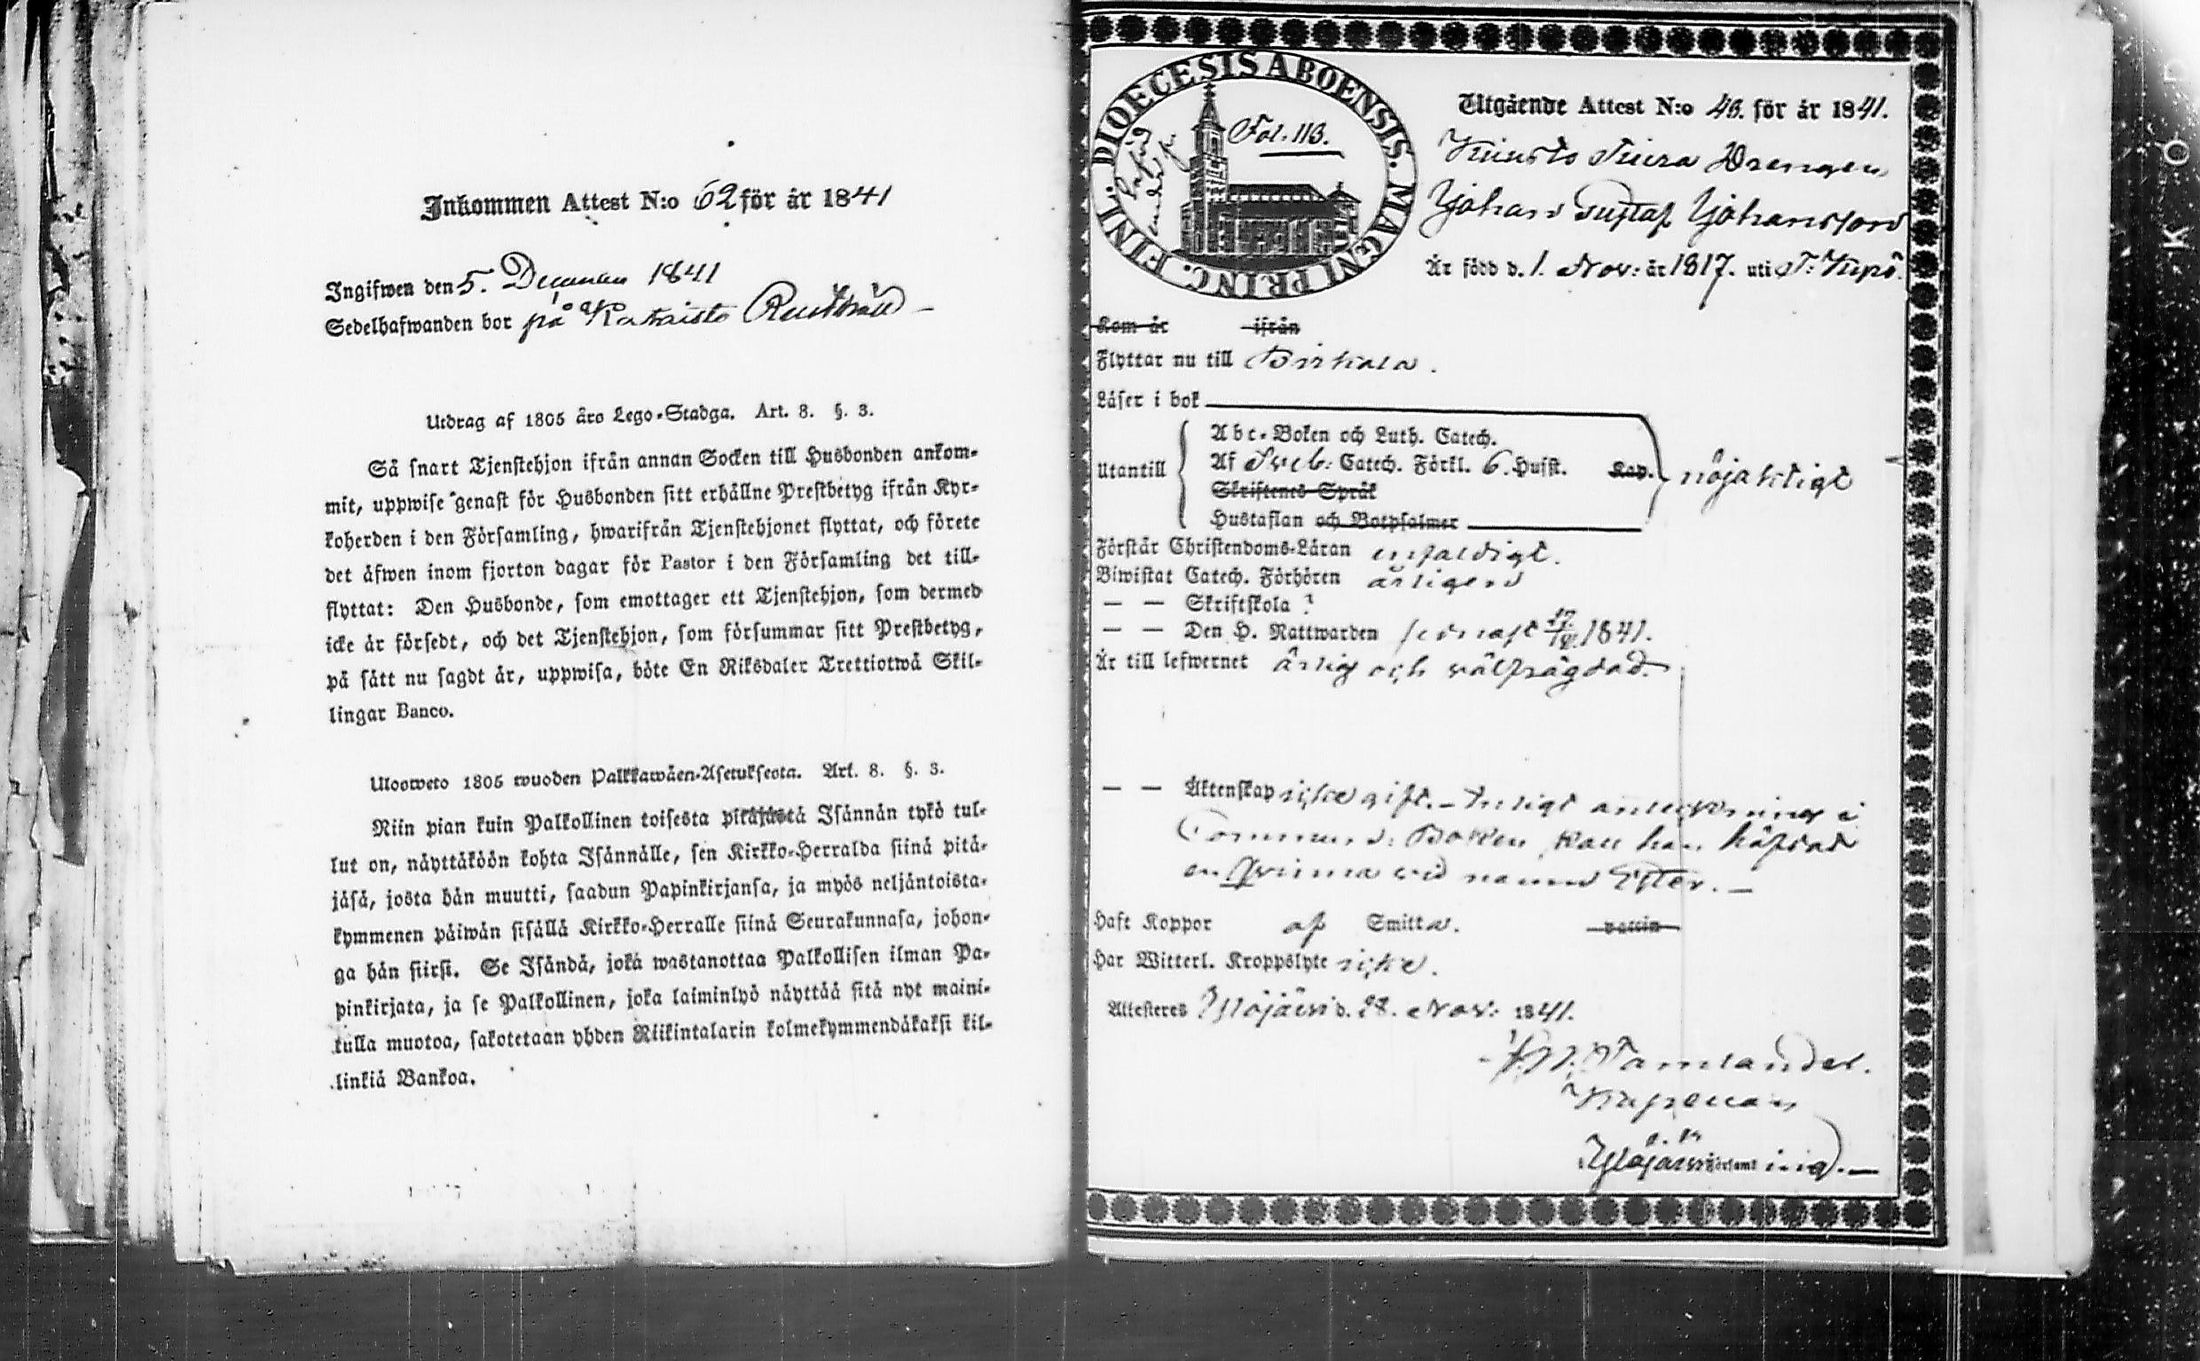 Inkommen Attest N:o 62 för år 1841
Ingifwen den 5. December 1841
Sedelhafwanden bor på Rusthåll –
Utdrag af 1805 års Lego-Stadga. Art. 8. §. 3.
Så snart Tjenstehjon ifrån annan Socken till Husbonden ankom-
mit, uppwise genast för Husbonden sitt erhållne Prestbetyg ifrån Kyr-
koherden i den Församling, hwarifrån Tjenstehjonet flyttat, och förete
det äfwen inom fjorton dagar för Pastor i den Församling det till-
flyttat: Den Husbonde, som emottager ett Tjenstehjon, som dermed
icke är försedt, och det Tjenstehjon, som försummar sitt Prestbetyg,
på sätt nu sagdt är, uppwisa, böte En Riksdaler Trettiotwå Skil-
lingar Banco.
Uloosweto 1805 wuoden Palkkawäen-Asetuksesta. Art. 8. §. 3.
Niin pian kuin Palkollinen toisesta pitäjästä Isännän tykö tul-
lut on, näyttäköön kohta Isännälle, sen Kirkko-Herralda siinä pitä-
jäsä, josta hän muutti, saadun Papinkirjansa, ja myös neljäntoista-
kymmenen päiwän sisällä Kirkko-Herralle siinä Seurakunnasa, johon-
ga hän siirsi. Se Isändä, joka wastanottaa Palkollisen ilman Pa-
pinkirjata, ja se Palkollinen, joka laiminlyö näyttää sitä nyt maini-
tulla muotoa, sakotetaan yhden Riikintalarin kolmekymmendäkaksi kil-
linkiä Bankoa.
DIOECESIS ABOENSIS. MAGNI PRINC. FINL.
Fol. 113.
Utgående Attest N:o 46. för år 1841.
Drengen
Johan Gustaf Johansson
Är född d. 1. Nov: år 1817. uti T: Kyrö.
Kom år ifrån
Flyttar nu till Birkala.
Läser i bok
Utantill
Abc-Boken och Luth. Catech.
Af Sveb: Catech. Förkl. 6. Hufst. Kap.
nöjaktigt
Skriftenes Språk
Hustaflan och Botpsalmer
Förstår Christendoms-Läran enfaldigt.
Biwistat Catech. Förhören årligen
— — Skriftskola
— — Den H. Nattwarden senast 17/10 1841.
Är till lefwernet ärlig och välfrägdad.
— — Äktenskap icke gift. – Enligt anteckning i
Commun: Boken han häfdat
en qvinna vid namn Ester. —
Haft Koppor af Smitta. vaccin
Har Witterl. Kroppslyte icke.
Attesteras Ylöjärvi d. 28. Nov: 1841.
Tamlander.
Kapellan
i Ylöjärvi Församling. —